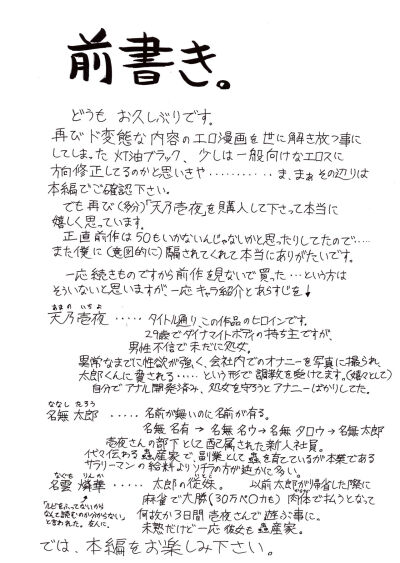 前書き。
どうも お久しぶりです。
再びド変態な内容のエロ漫画を世に解き放つ事に
してしまった 灯油ブラック、少しは一般向けなエロスに
方向修正してるのかと思いきや………… ま、まぁその辺りは
本編でご確認下さい。
でも再び(多分)「天乃壱夜」を購入して下さって本当に
嬉しく思っています。
正直前作は50もいかないんじゃないかと思ったりしてたので……
また僕に(意図的に)騙されてくれて本当にありがたいです。
一応続きものですから前作を見ないで買った…という方は
そういないと思いますが、一応 キャラ紹介とあらすじを↓
あまの いちよ
天乃壱夜 ・・・・・ タイトル通り、この作品のヒロインです。
29歳でダイナマイトボディの持ち主ですが、
男性不信で未だに処女。
異常なまでに性欲が強く、会社内でのオナニーを写真に撮られ、
太郎くんに愛される・・・・・という形で調教を受けてます。(嬉々として)
自分でアナル開発済み、処女を守ろうとアナニーばかりしてた。
ななし たろう
名無 太郎 ・・・・・ 名前が無いのに名前が有る。
名無 名有 → 名無 名ウ → 名無 タロウ → 名無太郎
壱夜さんの部下として配属された新人社員。
代々伝わる蟲産家で、副業として蟲を育てているが本業である
サラリーマンの給料よりソチラの方が遥かに多い。
なぐも りんか
名雲 燐華 ・・・・・ 太郎の従妹。 以前太郎が帰省した際に
麻雀で大勝(30万ペロカも)肉体で払うとなって
何故か3日間 壱夜さんで遊ぶ事に。
未熟だけど一応 彼女も蟲産家。
「ルビをふってないから
なんて読むのか分からない」
と言われた。友人に。
では、本編をお楽しみ下さい。